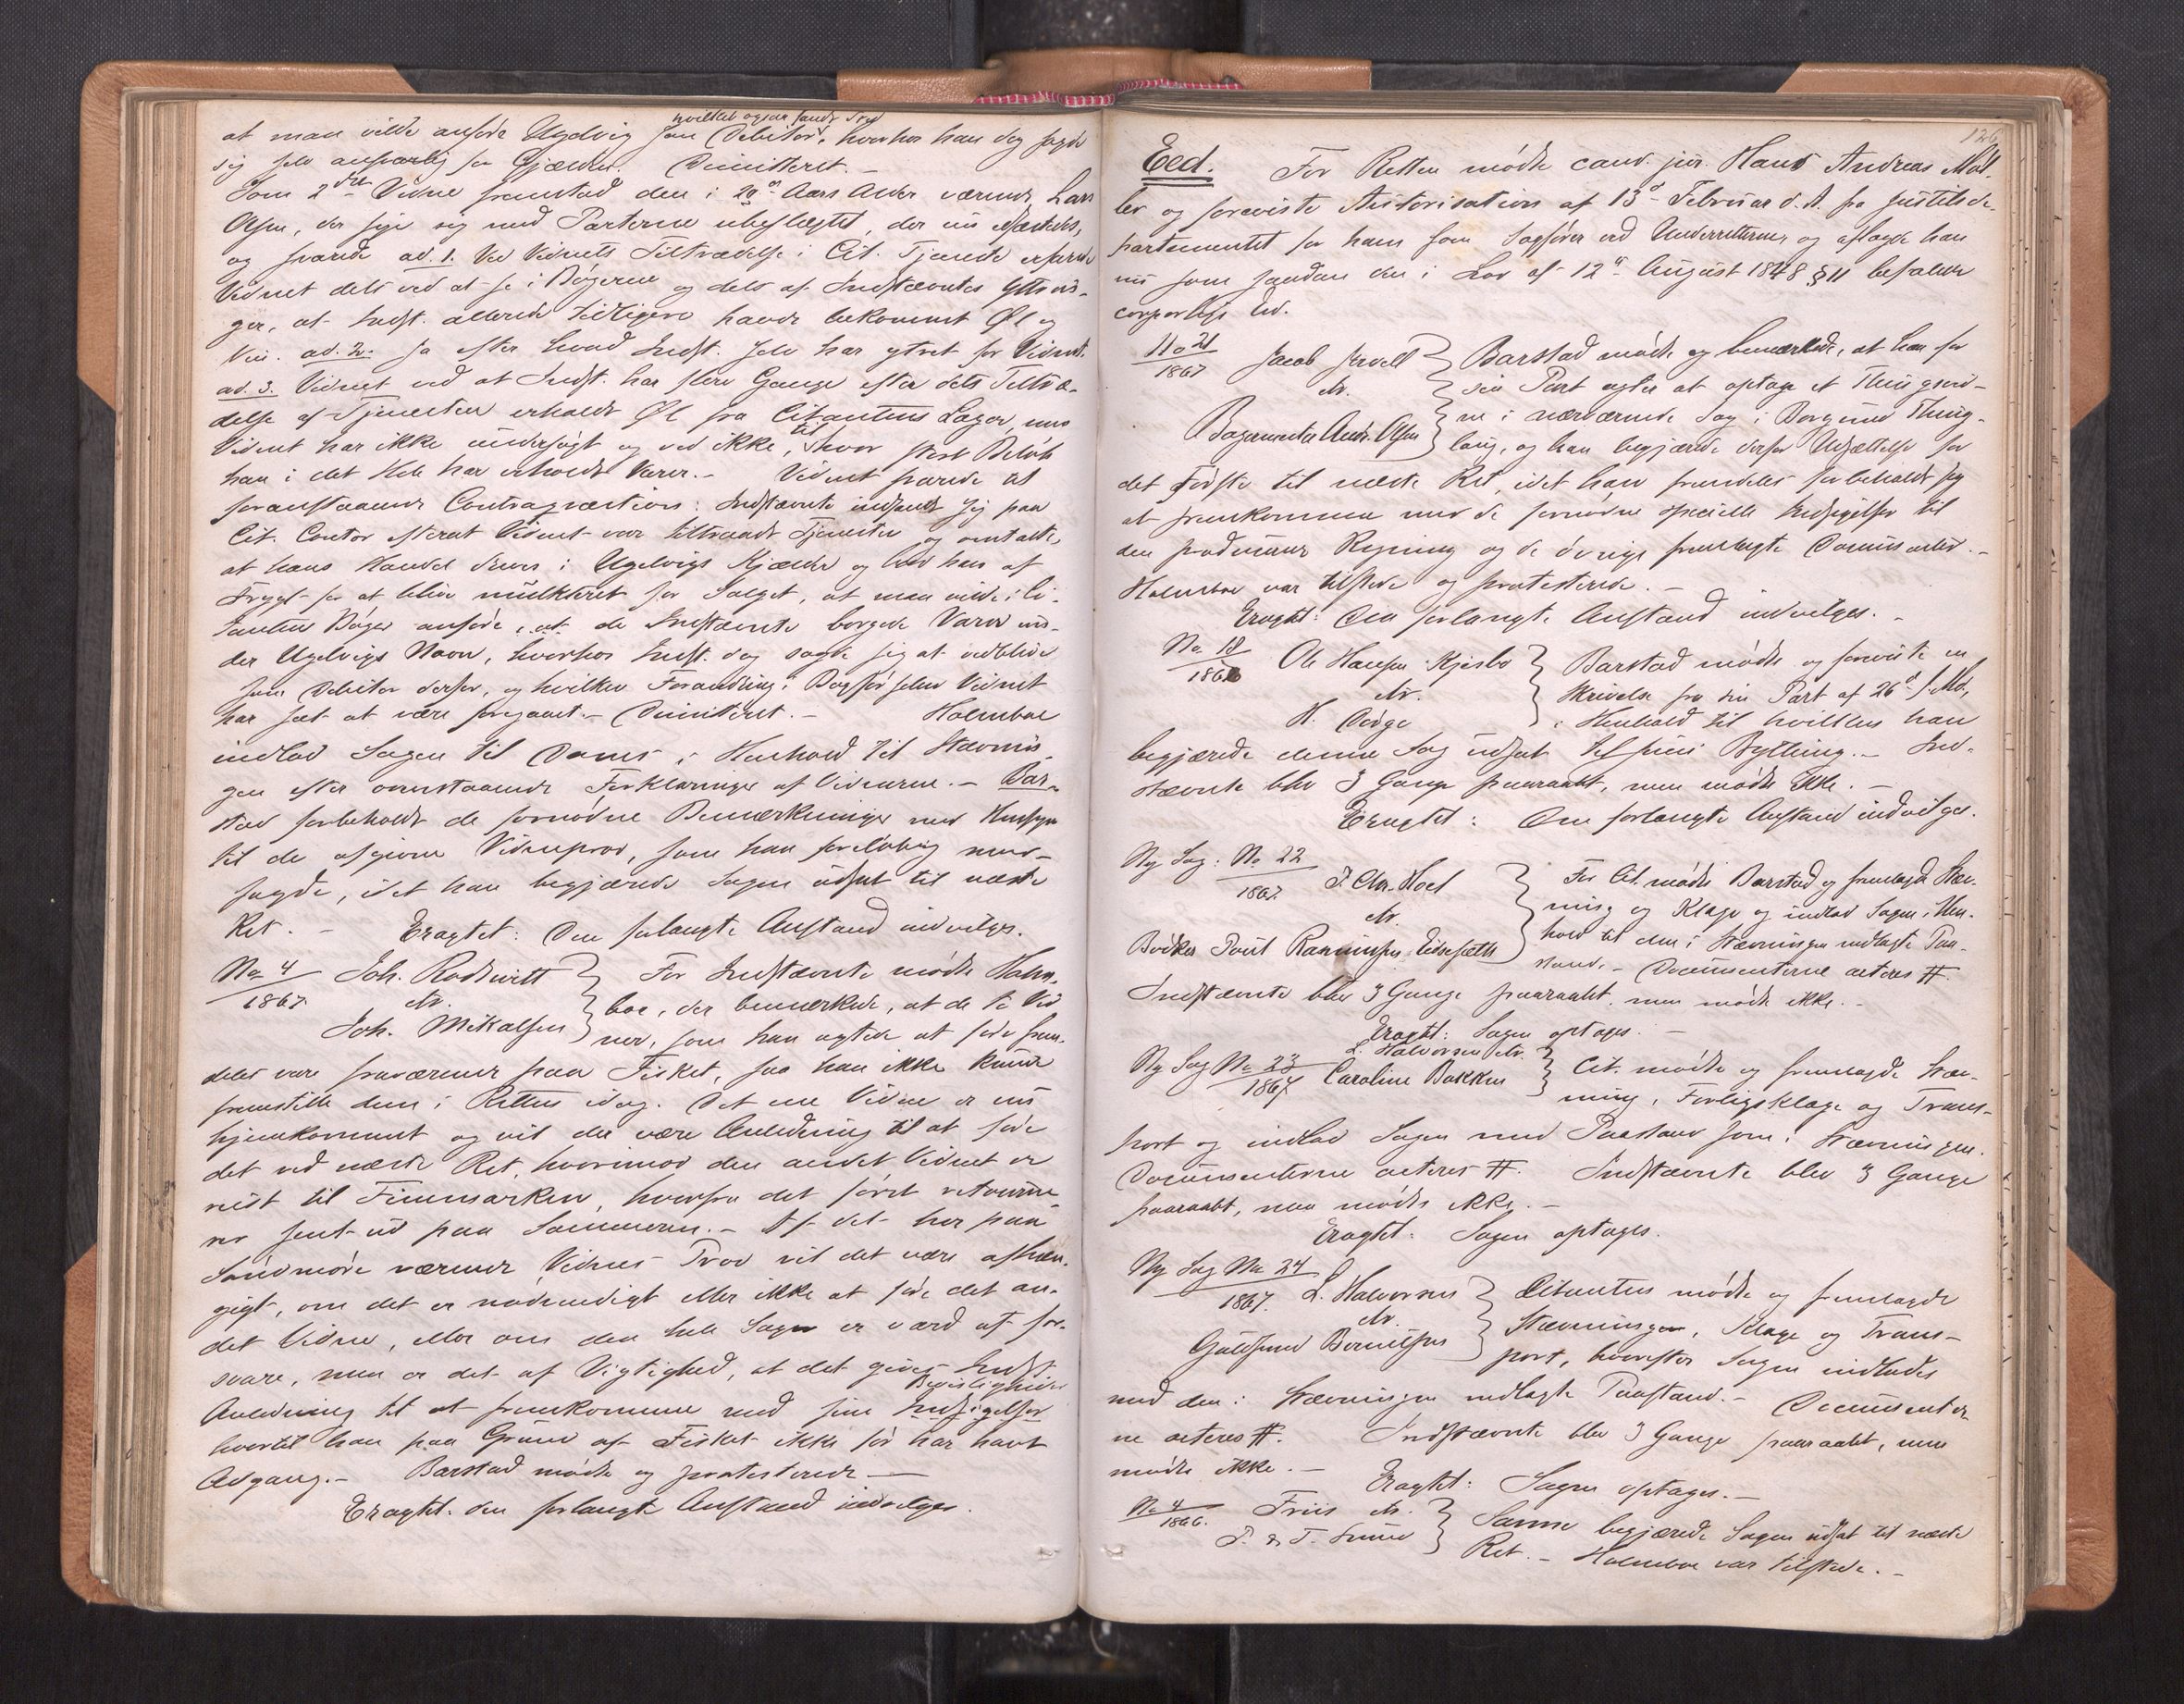 hvilket ogsaa fandt Sted
at man vilde anføre Ugelvig som Debitor, hvorhos han dog sagde
sig selv ansvarlig for Gjælden. Dimitteret.-
Som 2det Vidne fremstod den i 20de Aars Alder værende Lars
Olsen, der siger sig med Parterne ubeslægtet, der nu edfæstedes,
og svarede ad. 1. Ved Vidnets Tiltrædelse i Cit. Tjeneste erfarede
Vidnet dels ved at se i Bøgerne og dels af Indstævntes Yttrin-
ger, at Indst. allerede tidligere havde bekommet Øl og
Vin. ad. 2. Ja efter hvad Indst. selv har ytret for Vidnet.
ad. 3. Vidnet ved at Indst. har flere Gange efter dets Tiltræ-
delse af Tjenesten erholdt Øl fra Citantens Lager, men
Vidnet har ikke undersøgt og ved ikke, til hvor stort Beløb
han i det Hele har erholdt Varer.- Vidnet svarede til
foranstaaende Contraqvæstion: Indstævnte indfandt sig paa
Cit. Contor efterat Vidnet var tiltraadt Tjenesten og omtalte,
at hans Handel dreves i Ugelvigs Kjælder og bad han af
Frygt for at blive mulkteret for Salget, at man vilde i Ci-
tantens Bøger anføre, at de Indstævnte borgede Varer un-
der Ugelvigs Navn, hvorhos Indst. dog sagde sig at vedblive
som Debitor derfor, og hvilken Forandring i Bogførselen Vidnet
har seet at være foregaaet.- Dimitteret.- Holmboe
indlod Sagen til Doms i Henhold til Stævnin-
gen efter ovenstaaende Forklaringer af Vidnerne.- Bar-
stad forbeholdt de fornødne Bemærkninger med Hensyn
til de afgivne Vidneprov, som han foreløbig mod-
sagde, idet han begjærede Sagen udsat til næste
Ret.- Eragtet: Den forlangte Anstand indvilges.
No 4/1867. Joh. Rodtwitt ctr. Joh. Mikalsen } For Indstævnte mødte Holm-
boe, der bemærkede, at de to Vid-
ner, som han agtede at føre frem-
deles vare fraværende paa Fisket, saa han ikke kunde
fremstille dem i Retten idag. Det ene Vidne er nu
hjemkommet og vil der være Anledning til at føre
det ved næste Ret, hvorimod den andet Vidnet er
reist til Finmarken, hvorfra det først returne-
rer sent ud paa Sommeren.- Af det her paa
Søndmøre værende Vidnes Prov vil det være afhæn-
gigt, om det er nødvendigt eller ikke at føre det an-
det Vidne, eller om den hele Sagen er værd at for-
svare, men er det af Vigtighed, at det gives Indst.
Anledning til at fremkomme med sine Indsigelser Bevisligheder
hvortil han paa Grund af Fisket ikke før har havt
Adgang.- Barstad mødte og protesterede -
Eragtet. den forlangte Anstand indvilges.
126
Eed. For Retten mødte cand. jur. Hans Andreas Møl-
ler og foreviste Autorisation af 13de Februar d. A. fra Justitsde-
partementet for ham som Sagfører ved Underretterne og aflagde han
nu som saadan den i Lov af 12te August 1848 § 11 befalede
corporlige Ed.
No 21/1867 Jacob Jervell ctr. Bagermester Andr. Olsen } Barstad mødte og bemærkede, at han for
sin Part agter at optage et Thingsvid-
ne i nærværende Sag i Borgund Thing-
laug, og han begjærede derfor Udsættelse for
det Første til næste Ret, idet han fremdeles forbeholdt sig
at fremkomme med de fornødne specielle Indsigelser til
den producerede Regning og de øvrige fremlagte Documenter.-
Holmboe var tilstede og protesterede.-
Eragtet: Den forlangte Anstand indvilges.-
No 18/1866 Ole Hansen Kjerbo ctr. H. Döge } Barstad mødte og foreviste en
Skrivelse fra sin Part af 26de f. Md.,
i Henhold til hvilken han
begjærede denne Sag udsat til Juni Bything.- Ind-
stævnte blev 3 Gange paaraabt, men mødte ikke.-
Eragtet: Den forlangte Anstand indvilges.
Ny Sag: No 22/1867. P. Chr. Hoel ctr. Bødker Poul Rasmussen Eidesæth } For Cit. mødte Barstad og fremlagde Stæv-
ning og Klage og indlod Sagen i Hen-
hold til den i Stævningen nedlagte Paa-
stand.- Documenterne acteres #.
Indstævnte blev 3 Gange paaraabt, men mødte ikke.-
Eragtet: Sagen optages.-
Ny Sag No 23/1867. L. Halvorsen ctr. Caroline Bakken } Cit. mødte og fremlagde Stæv-
ning, Forligsklage og Trans-
port og indlod Sagen med Paastand som i Stævningen.
Documenterne acteres #. Indstævnte blev 3 Gange
paaraabt, men mødte ikke.-
Eragtet: Sagen optages.
Ny Sag No 24/1867. L. Halvorsen ctr. Guldsmed Berntsen } Citanten mødte og fremlagde
Stævningen, Klage og Trans-
port, hvorefter Sagen indlodes
med den i Stævningen nedlagte Paastand.- Documenter-
ne acteres #. Indstævnte blev 3 Gange paaraabt, men
mødte ikke.- Eragtet: Sagen optages.-
No 4/1866. Friis ctr. P. & T. Sunde } Samme begjærede Sagen udsat til næste
Ret.- Holmboe var tilstede.-